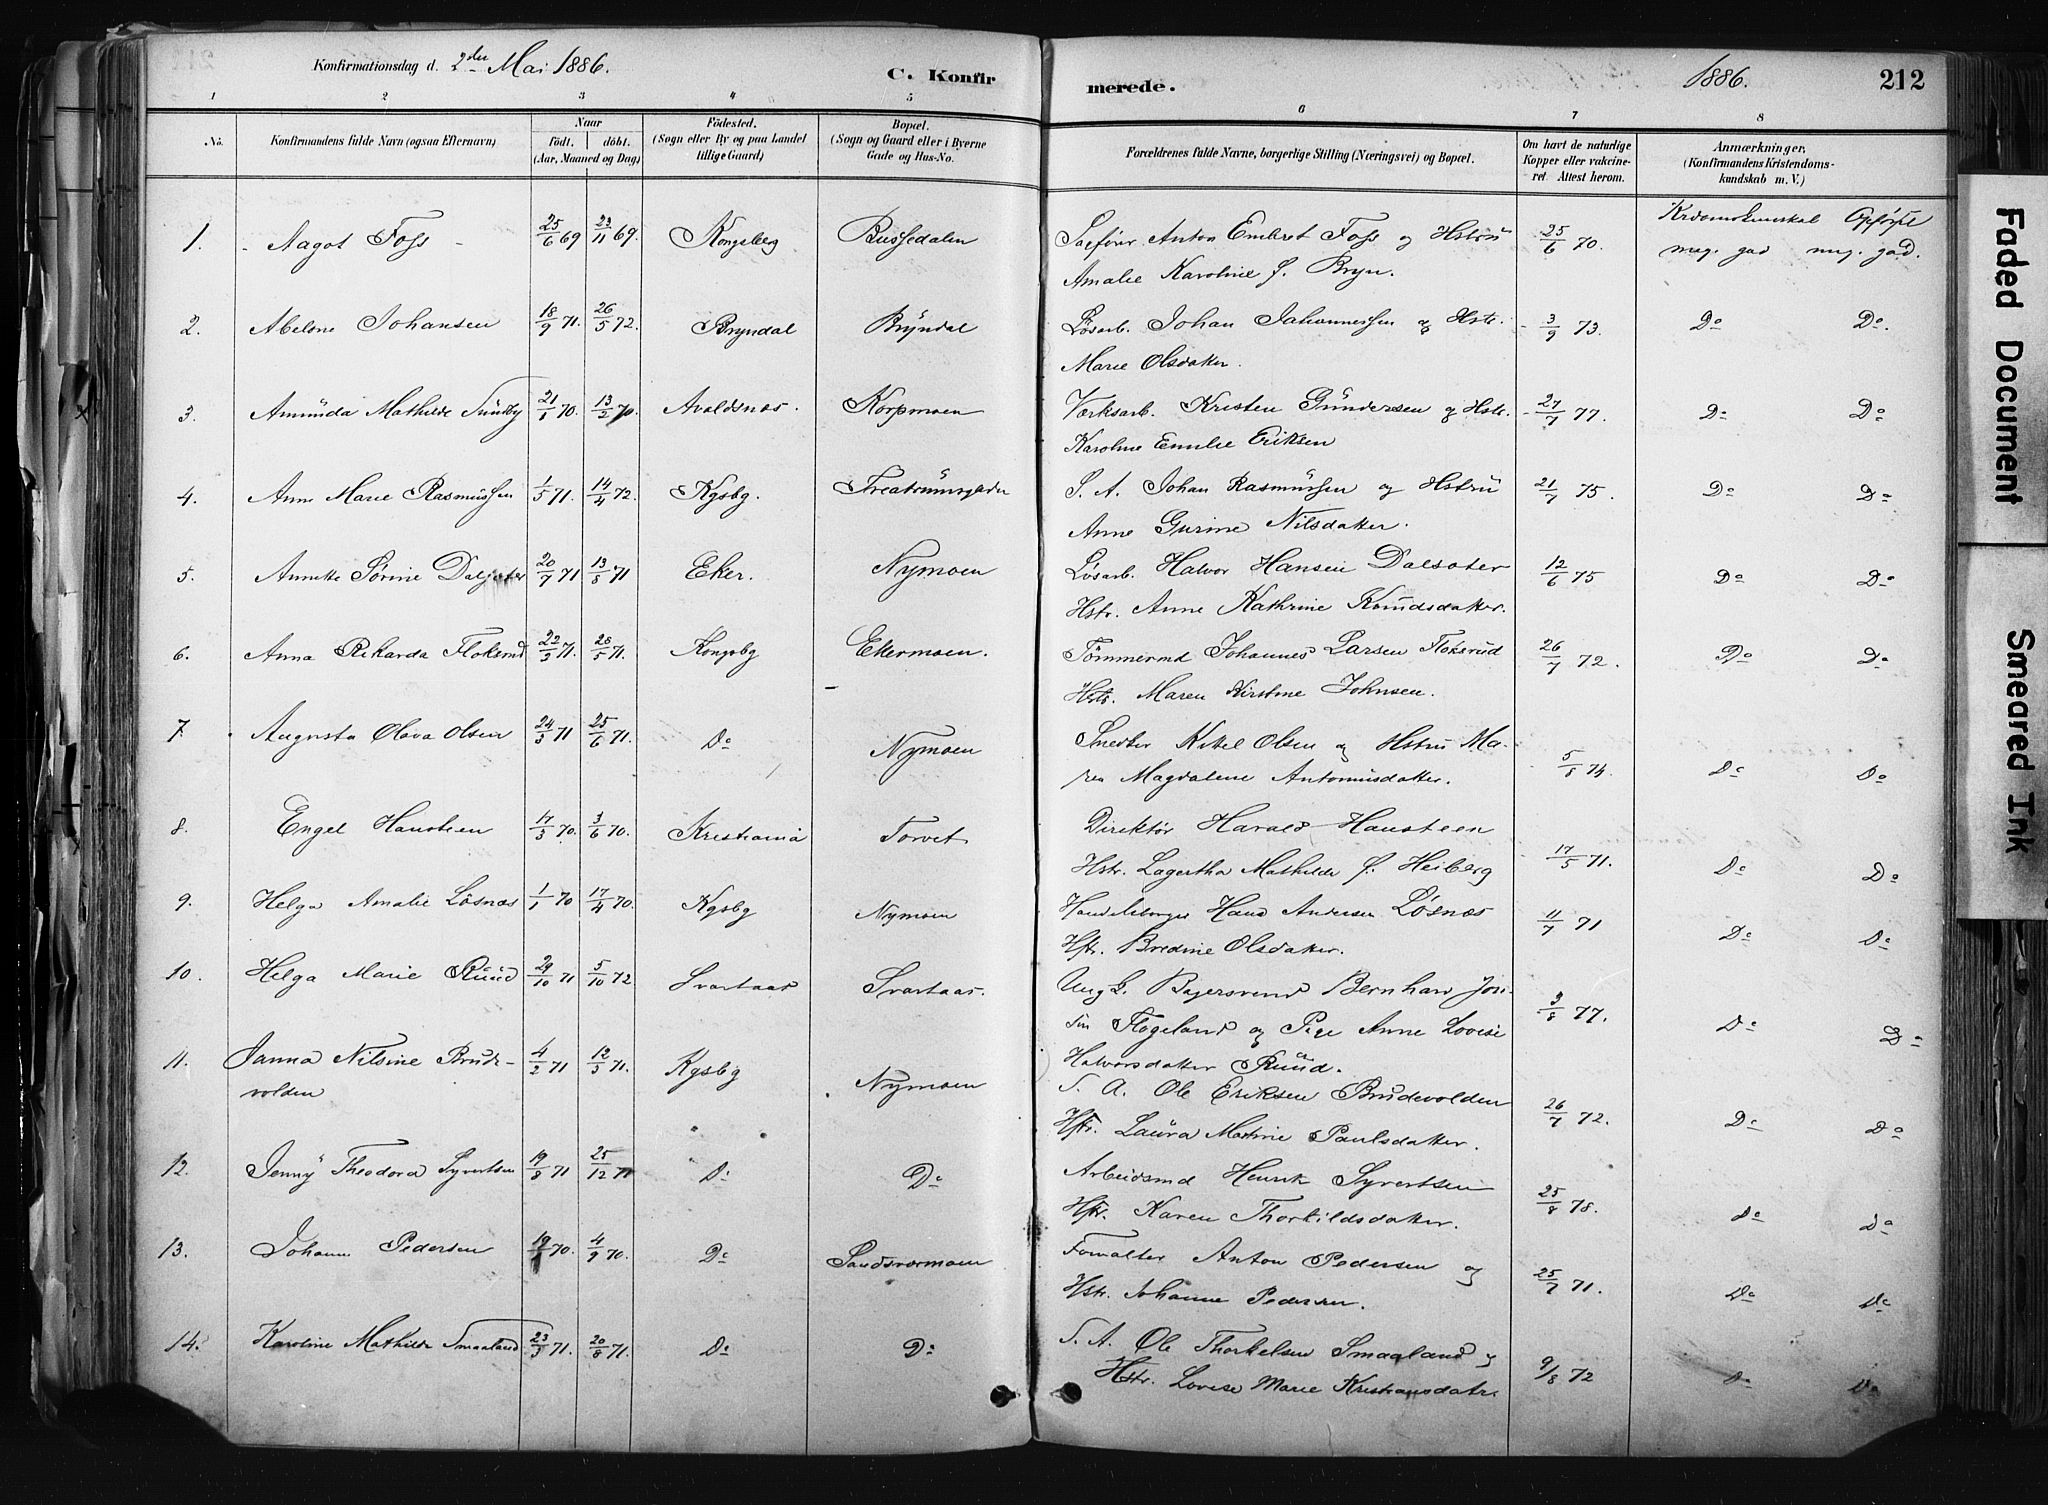 Konfirmationsdag d. 2den Mai 1886.
C. Konfirmerede.
1886.
212
1 2 3 4 5 6 7 8
No.
Konfirmandens fulde Navn (ogsaa Efternavn)
Naar
födt. döbt.
(Aar, Maaned og Dag)
Födested.
(Sogn eller By og paa Landet
tillige Gaard)
Bopæl.
(Sogn og Gaard eller i Byerne
Gade og Hus-No.
Forældrenes fulde Navne, borgerlige Stilling (Næringsvei) og Bopæl.
Om havt de naturlige
Kopper eller vakcine-
ret. Attest herom.
Anmærkninger.
(Konfirmandens Kristendoms-
kundskab m. V.)
1. Aagot Foss 25/6 69 23/11 69. Kongsberg Bussedalen Sagfører Anton Embret Foss og Hstru 25/6 70. Krdomskundskab Opførsel
Amalie Karoline f. Bryn. meg. god meg. god.
2. Abelone Johansen 18/9 71. 26/5 72. Bryndal Bryndal Løsarb. Johan Johannessen og Hstr. 3/9 73. Do Do.
Marie Olsdatter.
3. Amunda Mathilde Sundby 21/1 70. 13/2 70. Avaldsnes. Korpmoen Værksarb. Kristen Gundersen og Hstr. 27/7 77. Do Do
Karoline Emilie Eriksen
4. Anne Marie Rasmussen 1/5 71. 14/4 72. Kgsbg. Treatrumsgaden S. A. Johan Rasmussen og Hstru 21/7 75. Do Do
Anne Gurine Nilsdatter.
5. Annette Sørine Dalsæter 20/7 71 13/8 71 Eker. Nymoen Løsarb. Halvor Hansen Dalsæter 12/6 75 Do Do
Hstr. Anne Kathrine Knudsdatter.
6. Anna Rikarda Floksrud 22/3 71. 28/5 71. Kongsbg Ekermoen. Tømmermd Johannes Larsen Floksrud 26/7 72. Do Do
Hstr. Maren Kirstine Johnsen.
7. Augusta Olava Olsen 24/3 71 25/6 71. Do Nymoen Smedker Kittel Olsen og Hstru Ma-
ren Magdalene Antoniusdatter. 5/8 74. Do Do
8. Engel Hansteen 17/3 70. 3/6 70. Kristiania Torvet Direktør Harald Hansteen
Hstr. Lagertha Mathilde f. Heiberg 17/5 71. Do Do
9. Helga Amalie Løsnæs 1/1 70 17/4 70. Kgsbg Nymoen Handelsborger Hans Andersen Løsnæs 11/7 71 Do Do
Hstr. Bredine Olsdatter.
10. Helga Marie Ruud 29/10 71 5/10 72. Svartaas Svartaas. Ung. K. Bagersvend Bernhard Jon-
sen Flogeland og Pige Anne Lovise 3/8 77. Do Do
Halvorsdatter Ruud.
11. Janna Nilsine Brude-
volden 4/2 71 12/3 71. Kgsbg Nymoen S. A. Ole Eriksen Brudevolden 26/7 72. Do Do
Hstr. Laura Martine Paulsdatter.
12. Jenny Theodora Syvertsen 19/8 71 25/12 71 Do Do Arbeidsmd Henrik Syvertsen 25/8 78. Do Do
Hstr. Karen Thorkildsdatter.
13. Johanne Pedersen 19/1 70. 4/9 70. Do Sandsværmoen Forvalter Anton Pedersen og 25/7 71. Do Do
Hstr. Johanne Pedersen.
14. Karoline Mathilde Smaaland 23/3 71. 20/8 71. Do Do S. A. Ole Thorkelsen Smaaland og 9/8 72 Do Do
Hstr. Lovise Marie Kristiansdatr.
Faded Document
Smeared Ink